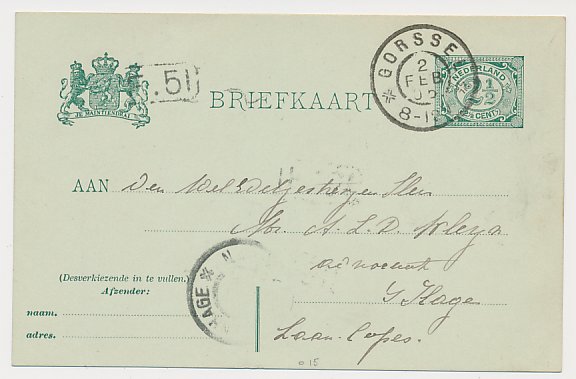 JE MAINTIENDRAI
.51
BRIEFKAART
GORSSE
2
FEB
8-1
NEDERLAND
2½
2½ CENT
AAN Den WelEdelgestrengen Heer
Mr. A. L. D. Kleyn
advocaat
s'Hage
Laan Copes.
(Desverkiezende in te vullen.)
Afzender:
naam.
adres.
HAGE * N
015